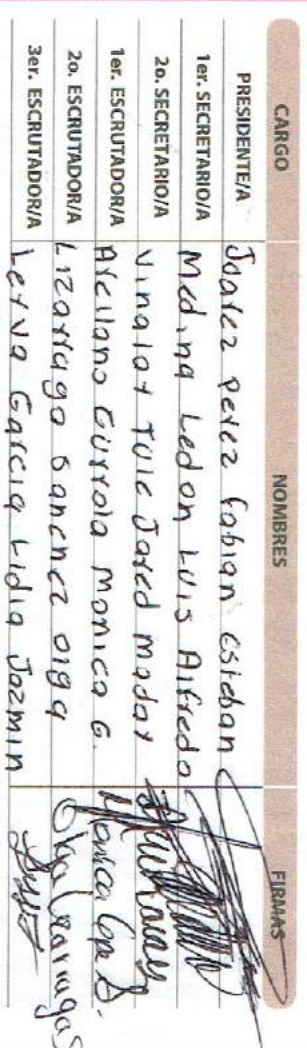 CARGO NOMBRES FIRMAS
PRESIDENTE/A Juarez Perez Fabian Esteban
1er. SECRETARIO/A Medina Ledon Luis Alfredo
2o. SECRETARIO/A Vinalay Tule Jared Maday
1er. ESCRUTADOR/A Arellano Gurrola Monica G.
2o. ESCRUTADOR/A Lizarraga Sanchez Olga Olga Lizarraga S
3er. ESCRUTADOR/A Leyva Garcia Lidia Jazmin